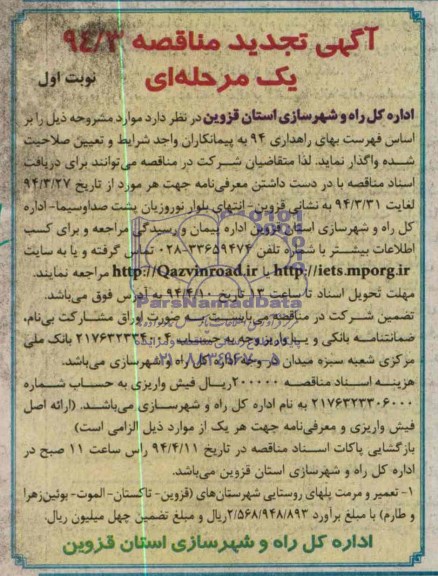 آگهی تجدید مناقصه ۹٤/۳
یک مرحله‌ای
نوبت اول
اداره کل راه و شهرسازی استان قزوین در نظر دارد موارد مشروحه ذیل را بر
اساس فهرست بهای راهداری ۹۴ به پیمانکاران واجد شرایط و تعیین صلاحیت
شده واگذار نماید. لذا متقاضیان شرکت در مناقصه می‌توانند برای دریافت
اسناد مناقصه با در دست داشتن معرفی‌نامه جهت هر مورد از تاریخ ۹۴/۳/۲۷
لغایت ۹۴/۳/۳۱ به نشانی قزوین- انتهای بلوار نوروزیان پشت صداوسیما- اداره
کل راه و شهرسازی استان قزوین اداره پیمان و رسیدگی مراجعه و برای کسب
اطلاعات بیشتر با شماره تلفن ۳۳۶۵۹۴۷۴-۰۲۸ تماس گرفته و یا به سایت
http://iets.mporg.ir یا http://Qazvinroad.ir مراجعه نمایند.
مهلت تحویل اسناد تا ساعت ۱۳ تاریخ ۹۴/۴/۱۰ به آدرس فوق می‌باشد.
تضمین شرکت در مناقصه می‌بایست به صورت اوراق مشارکت بی‌نام،
ضمانتنامه بانکی و یا واریز وجه به حساب بانک ملی
مرکزی شعبه سبزه میدان در وجه اداره کل راه و شهرسازی می‌باشد.
هزینه اسناد مناقصه ۲۰۰۰۰۰ ریال فیش واریزی به حساب شماره
۲۱۷۶۳۲۳۳۰۶۰۰۰ به نام اداره کل راه و شهرسازی می‌باشد. (ارائه اصل
فیش واریزی و معرفی‌نامه جهت هر یک از موارد ذیل الزامی است)
بازگشایی پاکات اسناد مناقصه در تاریخ ۹۴/۴/۱۱ راس ساعت ۱۱ صبح در
اداره کل راه و شهرسازی استان قزوین می‌باشد.
۱- تعمیر و مرمت پلهای روستایی شهرستان‌های (قزوین- تاکستان- الموت- بوئین‌زهرا
و طارم) با مبلغ برآورد ۲/۵۶۸/۹۴۸/۸۹۳ ریال و مبلغ تضمین چهل میلیون ریال.
اداره کل راه و شهرسازی استان قزوین
ParsNamadData